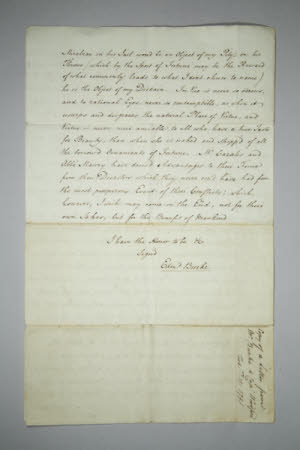 Mirabeau in his Jail would be an Object of my Pity; on his
Throne (which by the Sport of Fortune may be the Reward
of what commonly leads to what I dont chuse to name)
he is the Object of my Disdain. In Vice is never so odious,
and to rational Eyes never so contemptible, as when it
usurps and disgraces the natural Place of Virtue, and
Virtue is never more amiable to all who have a true Taste
for Beauty, than when she is naked and stripped of all
the borrowed Ornaments of Fortune. Mr. Cazales and
Abbé Maury have derived Advantages to their Fame
from those Disasters which they never could have had from
the most prosperous Event of their Conflicts; which
however, I wish may come in the End, not for their
own Sakes, but for the Benefit of Mankind
I have the Honor to be &c
Signed
Edmd Burke
Copy of a Letter from
Mr Burke to